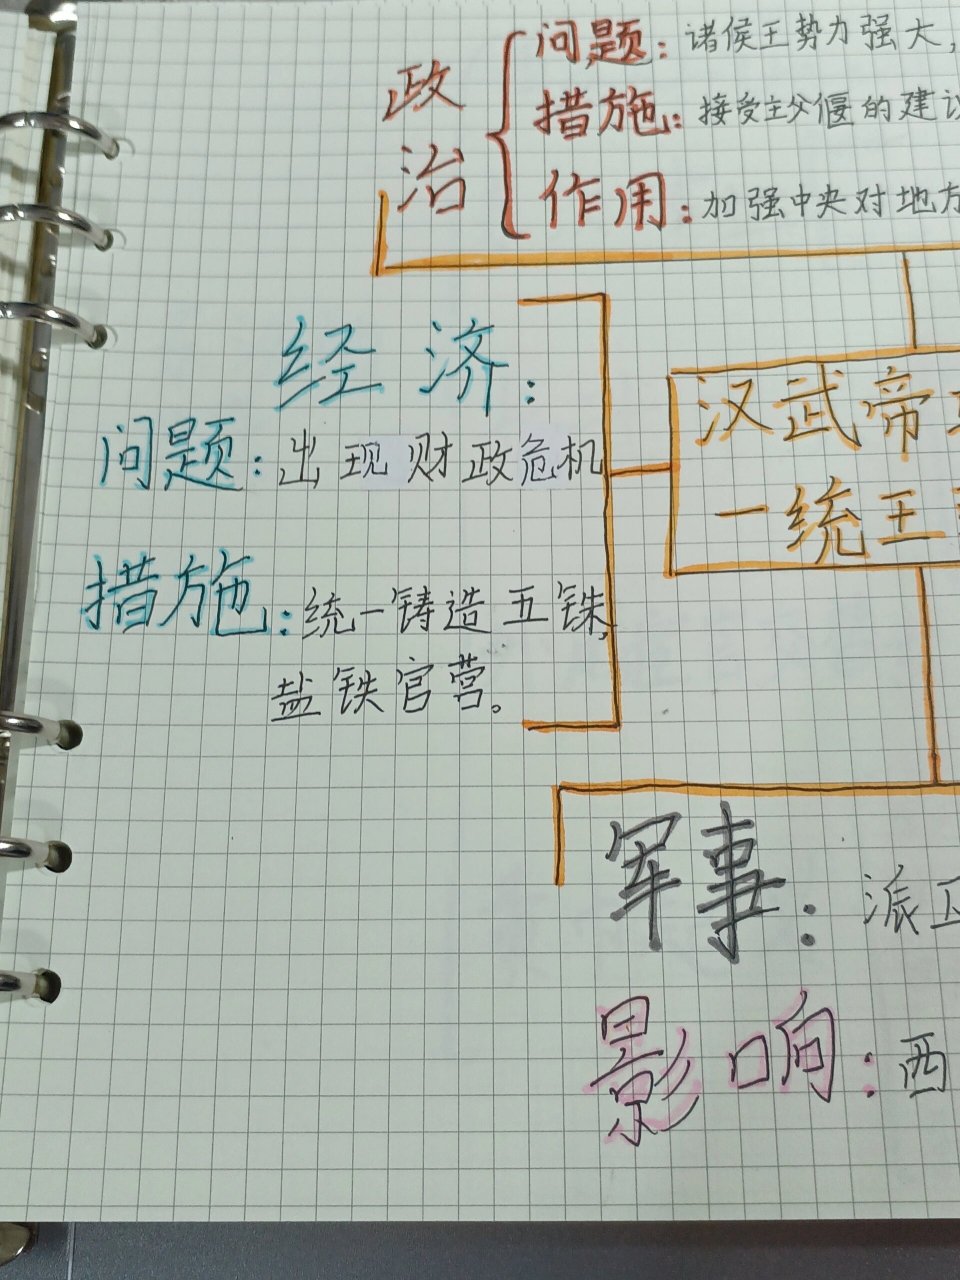 政治
问题：诸侯王势力强大，
措施：接受主父偃的建议
作用：加强中央对地方
经济：
问题：出现财政危机
措施：统一铸造五铢，
盐铁官营。
汉武帝
一统王
军事：派
影响：西